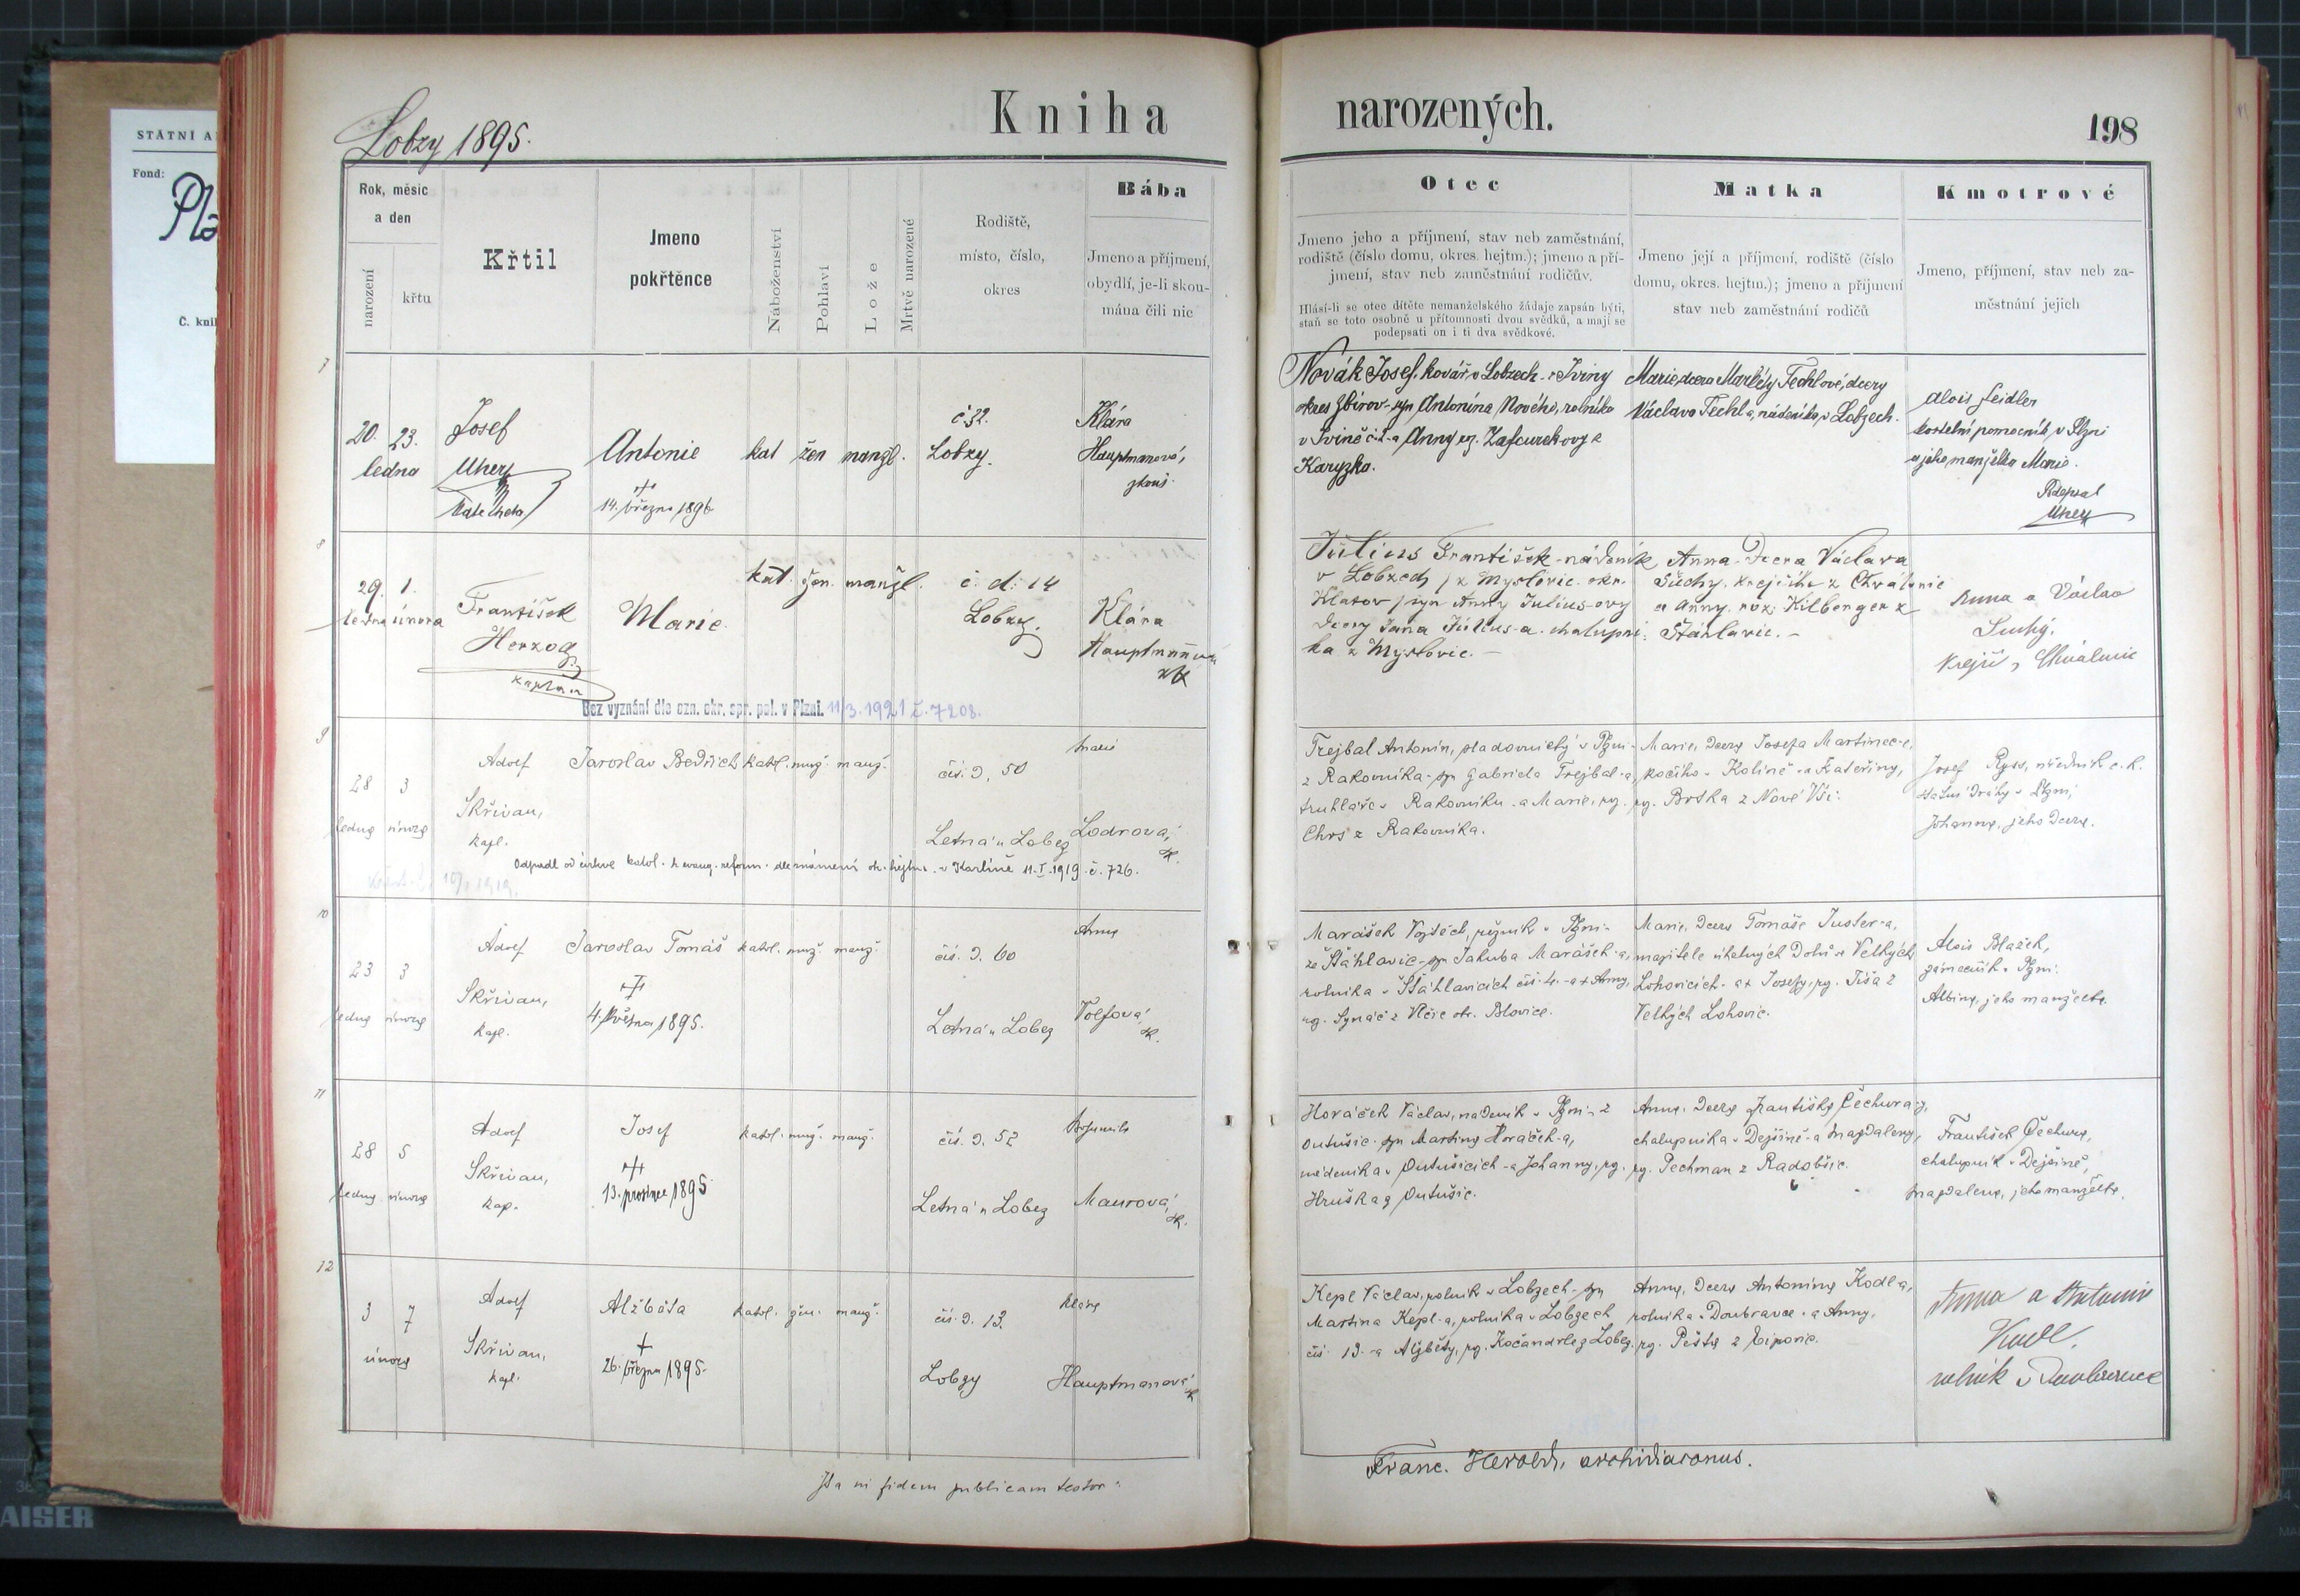 STÁTNÍ A
Fond:
Č. kni
Lobzy 1895.
Kniha
narozených.
198
Rok, měsíc
a den
narození
křtu
Křtil
Jmeno
pokřtěnce
Náboženství
Pohlaví
Lože
Mrtvě narozené
Rodiště,
místo, číslo,
okres
Bába
Jmeno a příjmení,
obydlí, je-li skou-
mána čili nic
Otec
Jmeno jeho a příjmení, stav neb zaměstnání,
rodiště (číslo domu, okres. hejtm.); jmeno a pří-
jmení, stav neb zaměstnání rodičův.
Hlásí-li se otec dítěte nemanželského žádaje zapsán býti,
staň se toto osobně u přítomnosti dvou svědků, a mají se
podepsati on i ti dva svědkové.
Matka
Jmeno její a příjmení, rodiště (číslo
domu, okres. hejtm.); jmeno a příjmení
stav neb zaměstnání rodičů
Kmotrové
Jmeno, příjmení, stav neb za-
městnání jejich
7
20. 23.
ledna
Josef
Uher
Antonie
14. března 1896
kat žen manžl.
č 32.
Lobzy.
Klára
Hauptmanová,
zkouš.
Novák Josef, kovář v Lobzech - z Sviny
okres Zbirov - syn Antonína Nového, rolníka
Karyzka.
Marie, dcera Markéty Techlové, dcery
Václava Techla, nádeníka v Lobzech.
Alois Seidler
kostelní pomocník v Plzni
a jeho manželka Marie.
Podepsal
Uher
8
29. 1.
ledna února
František
Herzog
kaplan
Marie
kat. žen. manžl.
č. d. 14
Lobzy.
Klára
Hauptmannová
zk
Bez vyznání dle ozn. okr. spr. pol. v Plzni. 11/3. 1921 č. 7208.
Július František - nádeník
v Lobzech / z Myslovic. okr.
Klatov / syn Anny Julius-ovy
dcery Jana Július-a. chalupní-
ka z Myslovic. -
Anna - dcera Václava
Suchý, krejčího z Chválenic
a Anny. roz. Kilberger z
Šťáhlavic. -
Anna a Václav
Suchý.
krejčí z Chválenic
9
28 3
ledna února
Adolf
Skřivan,
kapl.
Jaroslav Bedřich
katol. muž. manž.
čís. d. 50
Letná u Lobez
Marie
Lodrová,
zk.
Odpadl od církve katol. k evang. reform. dle oznámení ok. hejtm. v Karlíně 11. I. 1919 č. 726.
Trejbal Antonín, sladovnický v Plzni -
z Rakovníka - syn Gabriela Trejbal-a,
truhláře v Rakovníku - a Marie, roz.
Chrs z Rakovníka.
Marie, dcera Josefa Martinec-e,
kočího v Kolině - a Kateřiny,
roz. Brtka z Nové Vsi.
Josef Ryss, úředník c. k.
státní dráhy v Plzni,
Johanna, jeho dcera.
10
23 3
ledna února
Adolf
Skřivan,
kapl.
Jaroslav Tomáš
4. května 1895.
katol. muž. manž.
čís. d. 60
Letná u Lobez
Anna
Volfová,
zk.
Marášek Vojtěch, řezník v Plzni -
ze Šťáhlavic - syn Jakuba Marášek-a,
rolníka v Šťáhlavicích čís. 4. - a + Anny,
roz. Synáč z Vlčic okr. Blovice.
Marie, dcera Tomáše Juster-a,
majitele uhelných dolů ve Velkých
Lohovicích - a + Josefy, roz. Tiša z
Velkých Lohovic.
Alois Blažek,
zámečník v Plzni.
Albina, jeho manželka.
11
28 5
ledna února
Adolf
Skřivan,
kap.
Josef
13. prosince 1895
katol. muž. manž.
čís. d. 52
Letná u Lobez
Bohumila
Maurová,
zk.
Horáček Václav, nádeník v Plzni - z
Outušic - syn Martina Horáček-a,
nádeníka v Outušicích - a Johanny, roz.
Hruška z Outušic.
Anna, dcera Františka Čechura-y,
chalupníka v Dejšině - a Magdaleny,
roz. Pechman z Radobšic.
František Čechura,
chalupník v Dejšině,
Magdalena, jeho manželka.
12
3 7
února
Adolf
Skřivan,
kapl.
Alžběta
26. března 1895.
katol. žen. manž.
čís. d. 13.
Lobzy
Klára
Hauptmanová
zk
Kepl Václav, rolník v Lobzech - syn
Martina Kepl-a, rolníka v Lobzech
čís. 13. - a Alžběty, roz. Kočandrle z Lobez.
Anna, dcera Antonína Kodl-a,
rolníka v Doubravce - a Anny,
roz. Pešta z Litovic.
Anna a Antonín
Kodl.
rolník v Doubravce
Ita in fidem publicam testor:
Franc. Herold, archidiaconus.